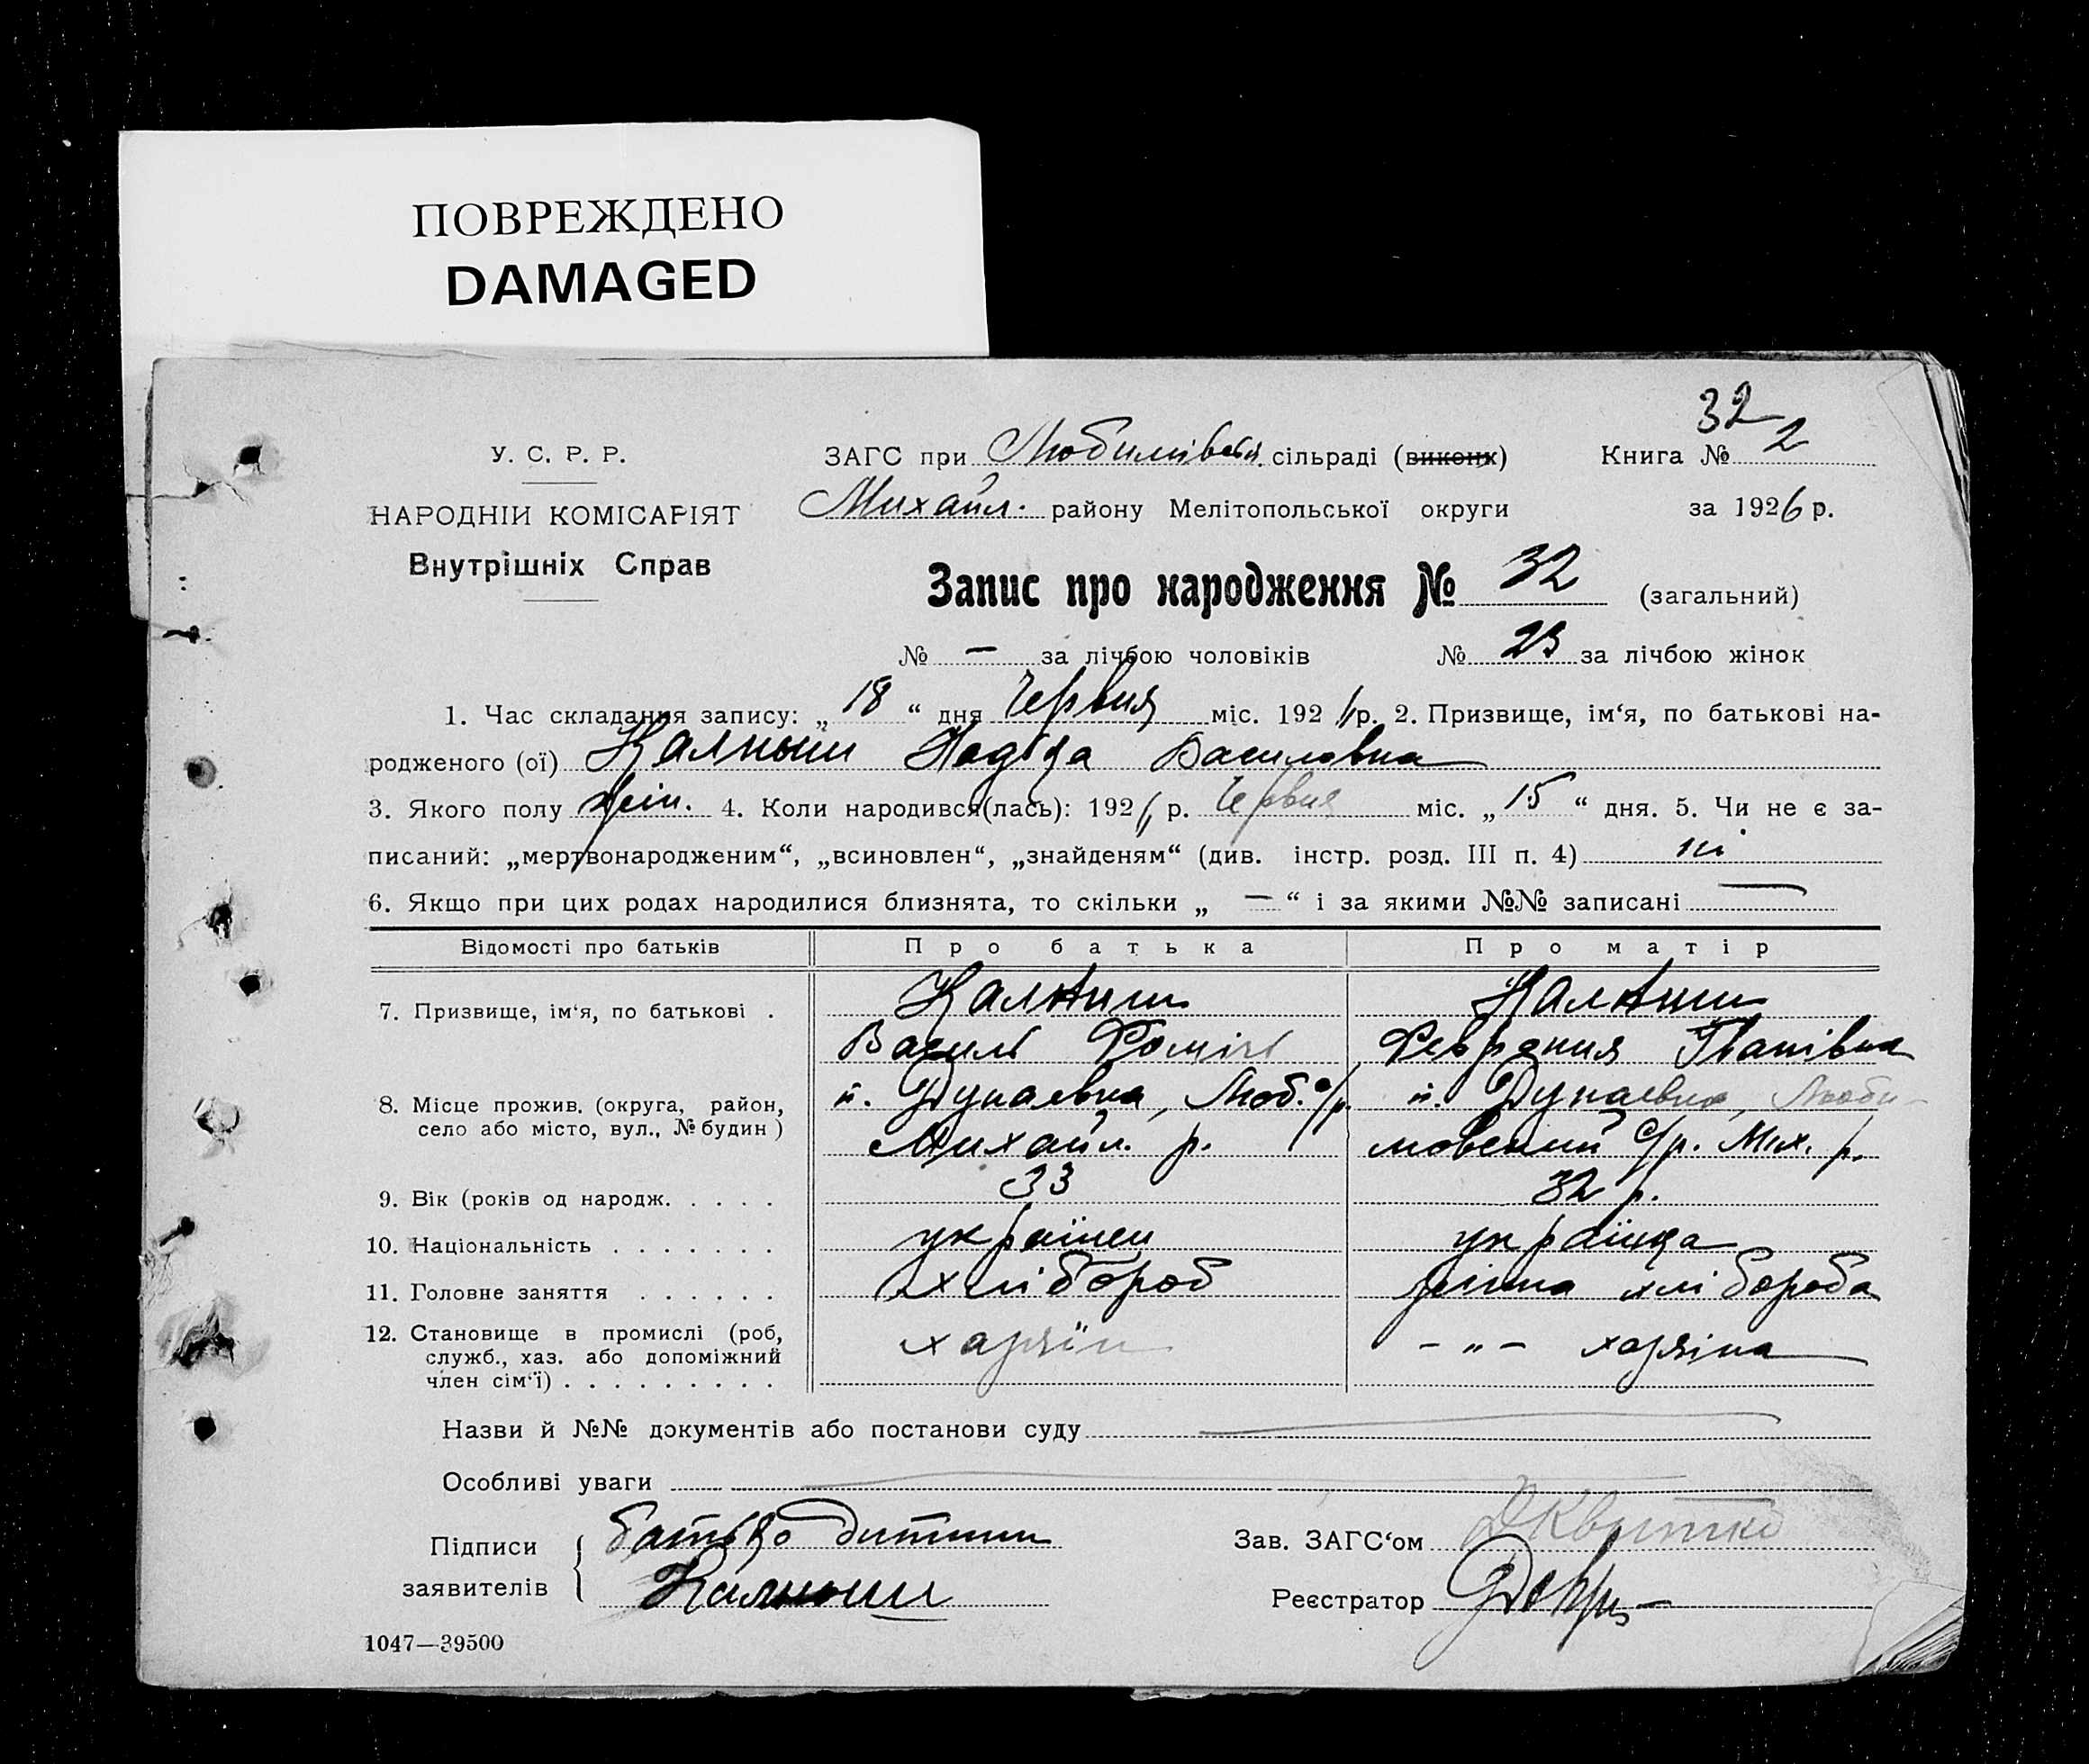 ПОВРЕЖДЕНО
DAMAGED
32
У. С. Р. Р.
ЗАГС при Любимівській сільраді (виконк) Книга № 2
НАРОДНІЙ КОМІСАРІЯТ
Михайл. району Мелітопольської округи за 1926 р.
Внутрішніх Справ
Запис про народження № 32 (загальний)
№ — за лічбою чоловіків № 23 за лічбою жінок
1. Час складання запису: „ 18 “ дня Червня міс. 1926 р. 2. Призвище, ім‘я, по батькові на-
родженого (ої) Калниш Надіда Василовна
3. Якого полу жін. 4. Коли народився(лась): 1926 р. Червня міс. „ 15 “ дня. 5. Чи не є за-
писаний: „мертвонародженим“, „всиновлен“, „знайденям“ (див. інстр. розд. III п. 4) ні
6. Якщо при цих родах народилися близнята, то скільки „ — “ і за якими №№ записані —
Відомості про батьків Про батька Про матір
7. Призвище, ім‘я, по батькові . Калниш Калниш
Василь Фоміч Февронія Іванівна
8. Місце прожив. (округа, район, п. Дунаевка, Люб. с/р. п. Дунаевка, Люби-
село або місто, вул., № будин ) Михайл. р. мовский с/р. Мих. р.
9. Вік (років од народж. . . . . 33 32 р.
10. Національність . . . . . . . українец українка
11. Головне заняття . . . . . . хлібороб жінка хлібороба
12. Становище в промислі (роб, хазяїн - „ - хазяіна
служб., хаз. або допоміжний
член сім‘ї) . . . . . . . . .
Назви й №№ документів або постанови суду
Особливі уваги
Підписи батько дитини Зав. ЗАГС‘ом
заявителів Калныш Реєстратор
1047—39500